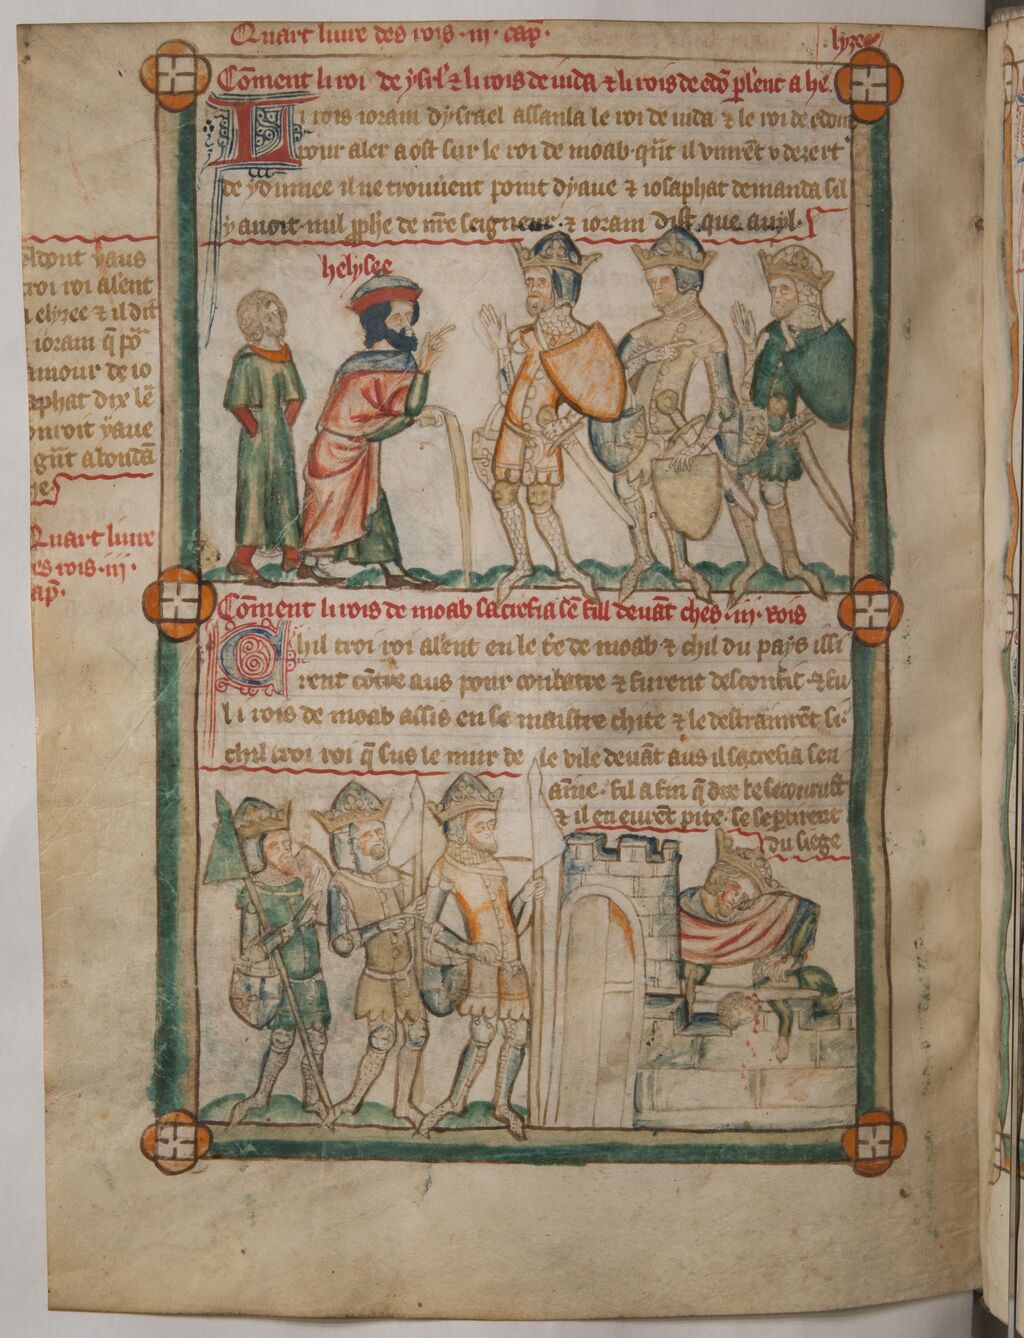 Quart liure des rois · iii · cap̄ ·
Cōment li roi de ysrl' & li rois de iuda & li rois de edō vlent a he
lyzee
Li rois ioram dysrael assanla le roi de iuda & le roi de edom
pour aler a ost sur le roi de moab · qñt il vinrent v dezert
de ydumee il ne trouuent point dyaue & iosaphat demanda sil
y auoit nul pph̄e de nr̄e seigneur · & ioram dist · que auyl ·
dont yaus
troi roi alent
a elyzee & il dit
ioram q̄ po
amour de io
saphat dix le
yaue
abondā
helysee
Quart liure
des rois · iii ·
cap̄ ·
Cōment li rois de moab sacrefia sē fill deuāt ches · iii · rois
Chil troi roi alent en le t̄e de moab · & chil du pays issi
rent cōtre aus pour conbatre & furent desconfit · & fu
li rois de moab assis en se maistre chite & le destrainrēt si ·
chil troi roi q̄ sus le mur de le vile deuāt aus il sacrefia sen
ainne · fil a fin q̄ dex le secourust
& il en eurēt pite · se se ptirent
du siege